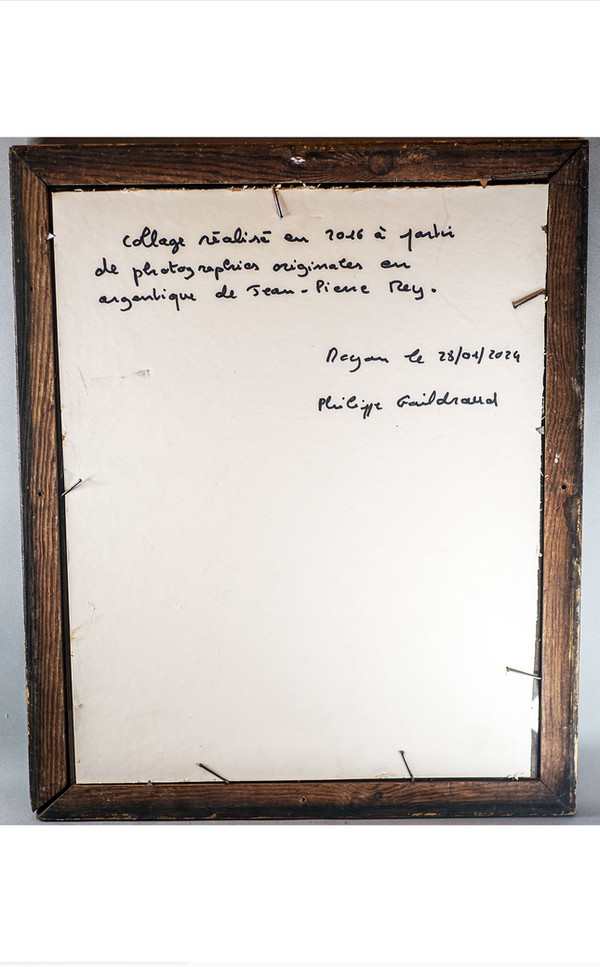 Collage réalisé en 2016 à partir
de photographies originales en
argentique de Jean-Pierre Rey.
Royan le 28/01/2024
Philippe Gaildraud